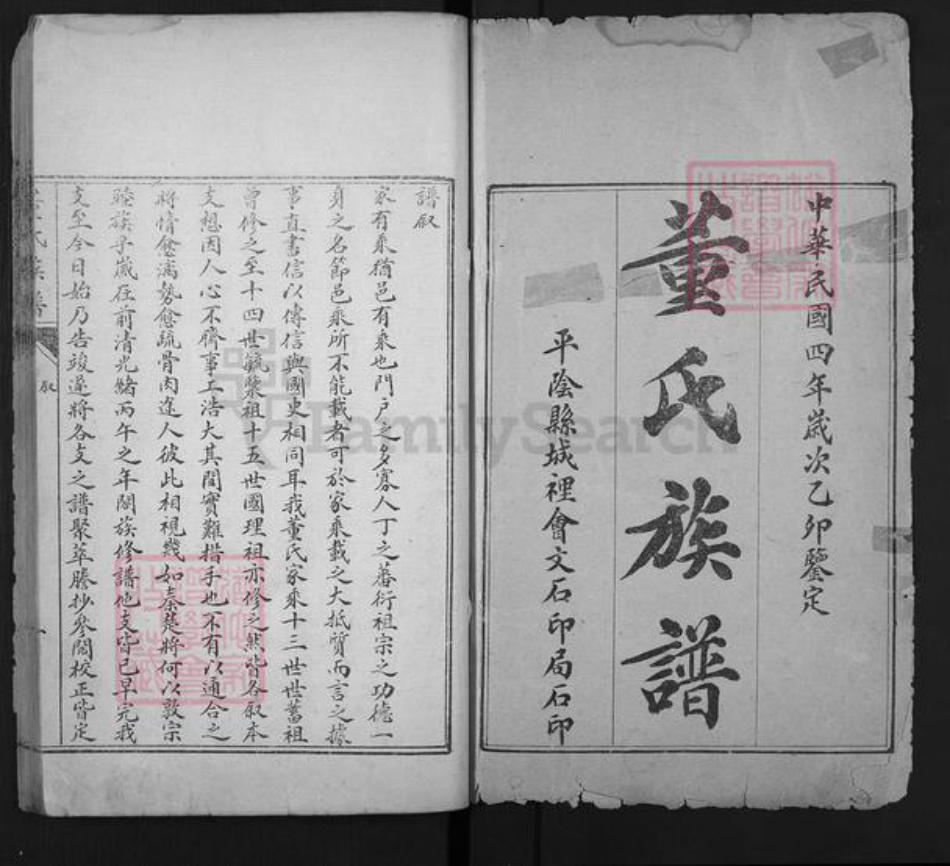 中華民國四年歲次乙卯鑒定
董氏族譜
平陰縣城裡會文石印局石印
譜叙
家有乘猶邑有乘也門户之多寡人丁之蕃衍祖宗之功德一
身之名節邑乘所不能載者可於家乘載之大抵質而言之據
事直書信以傳信與國史相同耳我董氏家乘十三世世蓄祖
曾修之至十四世毓榮祖十五世國理祖亦修之然皆各叙本
支想因人心不齊事工浩大其間實難措手也不有以通合之
將情愈漓勢愈疏骨肉途人彼此相視幾如秦楚將何以敦宗
睦族乎歲在前清光緒丙午之年闔族修譜他支皆已早完我
支至今日始乃告竣遂將各支之譜聚萃謄抄參閱校正皆定
氏族譜
叙
一
FamilySearch